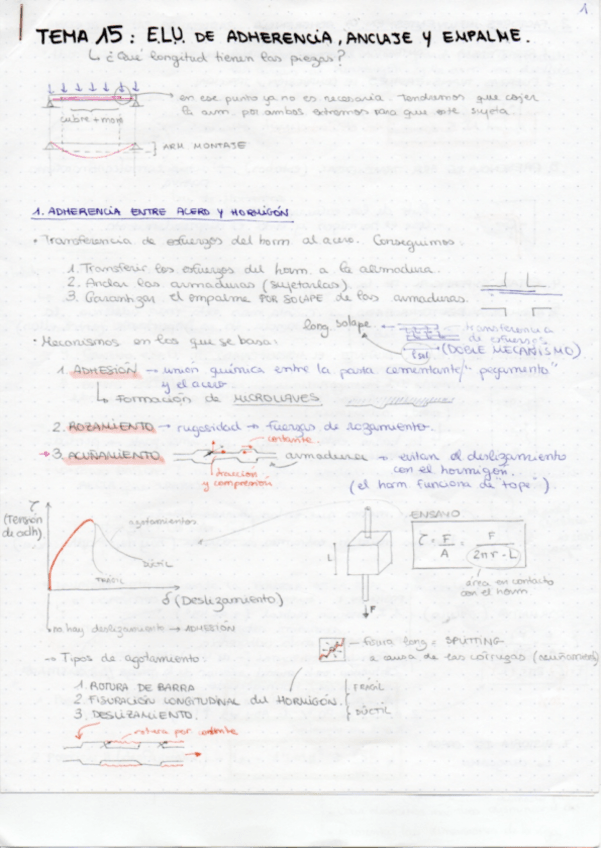 1
TEMA 15: E.L.U. DE ADHERENCIA, ANCLAJE Y EMPALME.
↳ ¿Qué longitud tienen las piezas?
en ese punto ya no es necesaria. Tendremos que cojer
la arm. por ambos extremos para que este sujeta.
cubre + mom
ARM MONTAJE
1. ADHERENCIA ENTRE ACERO Y HORMIGÓN
• Transferencia de esfuerzos del horm al acero. Conseguimos:
1. Transferir los esfuerzos del horm. a la armadura.
2. Anclar las armaduras (sujetarlas).
3. Garantizar el empalme POR SOLAPE de las armaduras.
long solape. ← transferencia
de esfuerzos
(DOBLE MECANISMO)
• Mecanismos en los que se basa:
1. ADHESIÓN → unión química entre la pasta cementante/"pegamento"
y el acero.
↳ Formación de MICROLLAVES
2. ROZAMIENTO → rugosidad → fuerzas de rozamiento.
cortante.
→ 3. ACUÑAMIENTO armadura → evitan el deslizamiento
con el hormigón.
tracción
y compresión
(el horm funciona de "tope").
τ
(Tensión
de adh)
agotamientos
DÚCTIL
FRÁGIL
δ (Deslizamiento)
↳ no hay deslizamiento → ADHESIÓN
ENSAYO
τ = F/A = F/(2πr·L)
L
área en contacto
con el horm.
F
→ Tipos de agotamiento:
fisura long = SPLITTING
a causa de las corrugas
1. ROTURA DE BARRA
2. FISURACIÓN LONGITUDINAL del HORMIGÓN.
3. DESLIZAMIENTO.
FRÁGIL
DÚCTIL
rotura por cortante